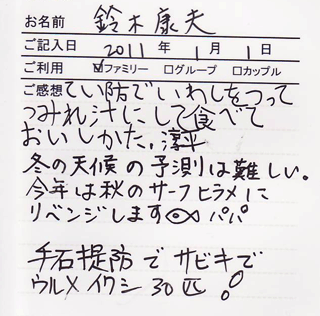 お名前 鈴木康夫
ご記入日 2011年 1月 1日
ご利用 ☑ファミリー □グループ □カップル
ご感想 てい防でいわしをつって
つみれ汁にして食べて
おいしかた。淳平
冬の天候の予測は難しい。
今年は秋のサーフヒラメに
リベンジします パパ
手石提防でサビキで
ウルメイワシ 30匹!